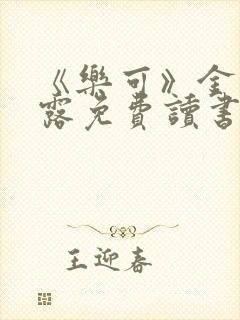 《樂可》金
露免費讀書
王迎春